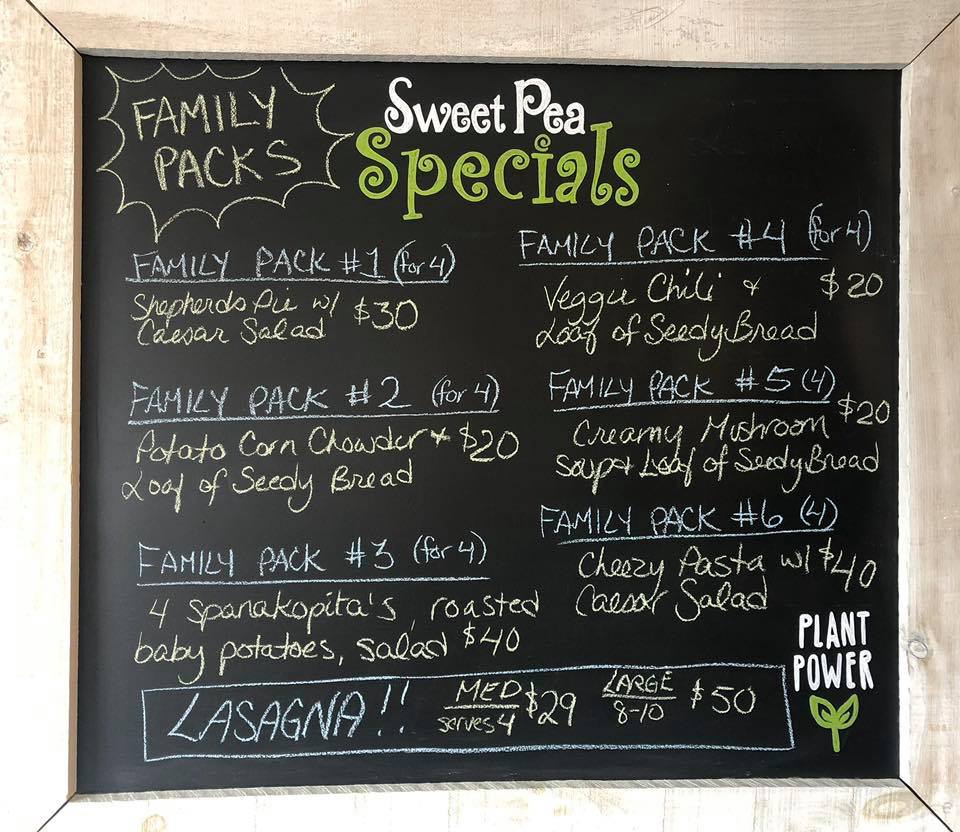 FAMILY
PACKS
Sweet Pea
Specials
FAMILY PACK #1 (for 4)
Shepherds Pie w/ $30
Caesar Salad
FAMILY PACK #2 (for 4)
Potato Corn Chowder & $20
Loaf of Seedy Bread
FAMILY PACK #3 (for 4)
4 spanakopita's, roasted
baby potatoes, salad $40
FAMILY PACK #4 (for 4)
Veggie Chili & $20
Loaf of Seedy Bread
FAMILY PACK #5 (4)
$20
Creamy Mushroom
Soup & Loaf of Seedy Bread
FAMILY PACK #6 (4)
Cheezy Pasta w/ $40
Caesar Salad
LASAGNA!! MED $29 LARGE $50
serves 4 8-10
PLANT
POWER